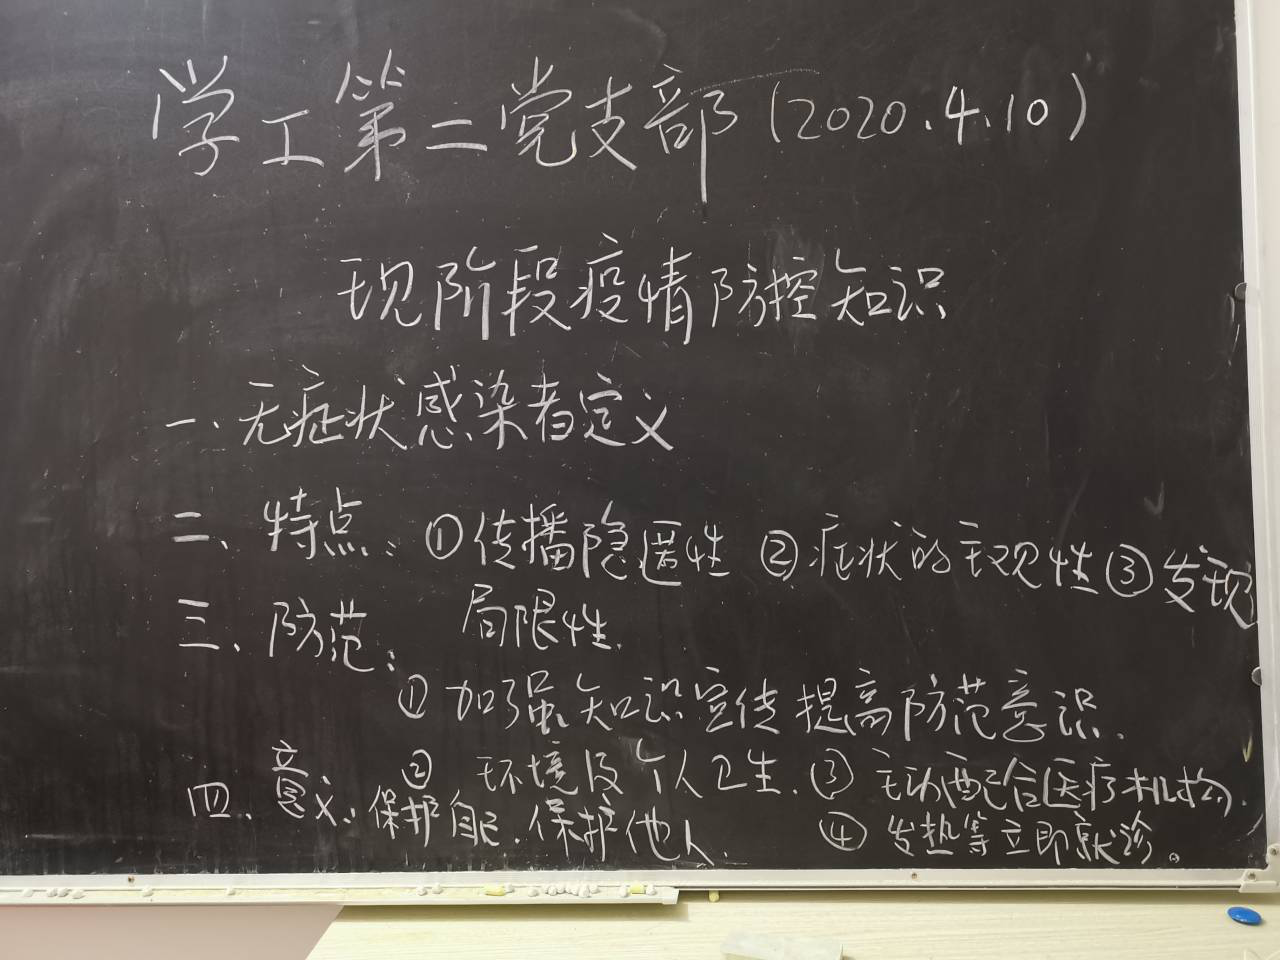 学工第二党支部(2020.4.10)
现阶段疫情防控知识
一、无症状感染者定义
二、特点：①传播隐匿性 ②症状的主观性 ③发现
局限性.
三、防范：
①加强知识宣传提高防范意识.
② 环境及个人卫生. ③ 主动配合医疗机构.
④ 发热等立即就诊。
四、意义：保护自己.保护他人.